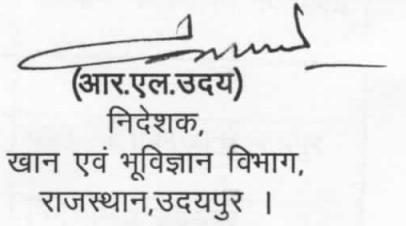 (आर.एल.उदय)
निदेशक,
खान एवं भूविज्ञान विभाग,
राजस्थान,उदयपुर ।